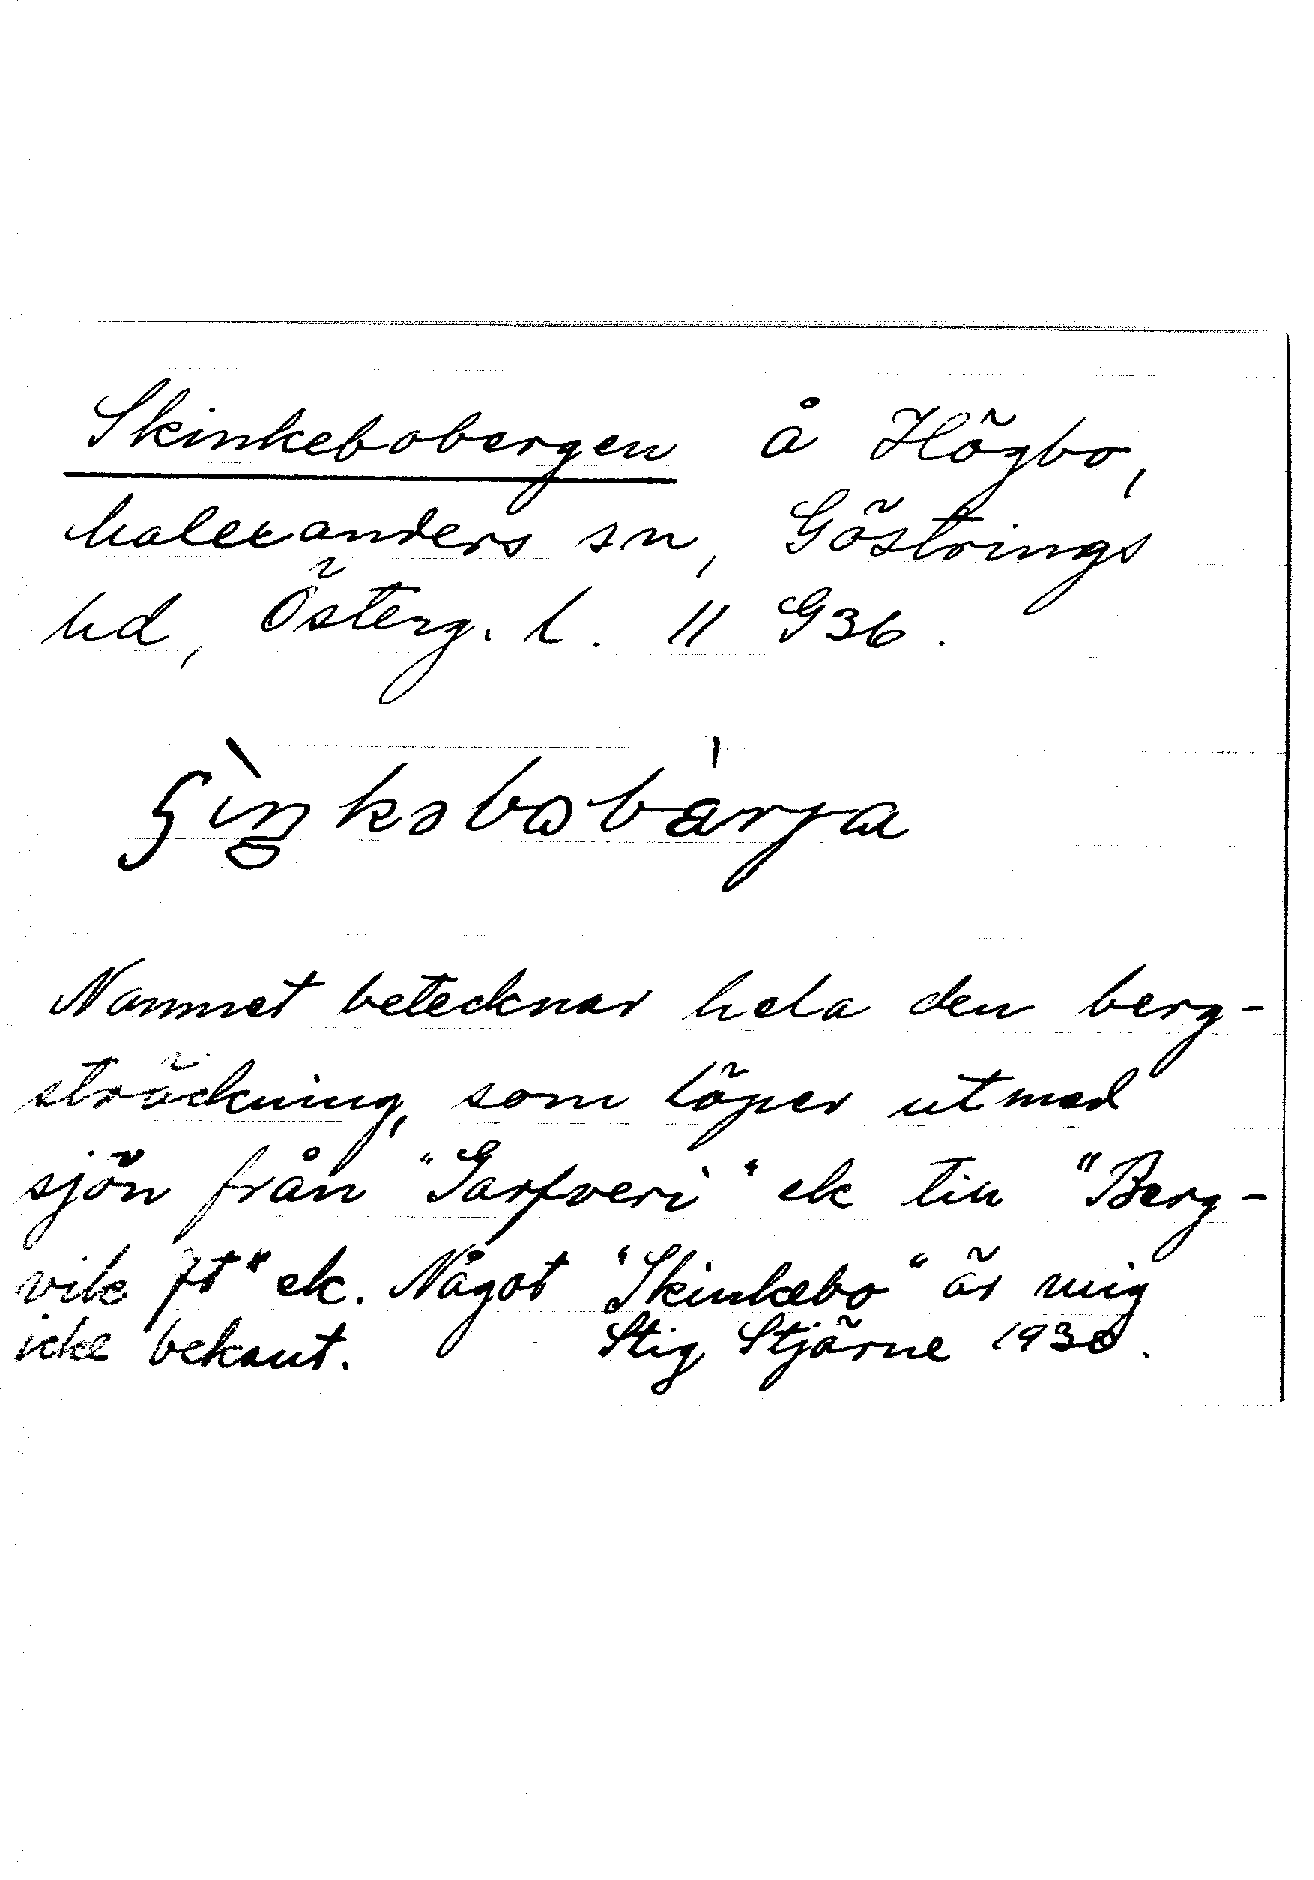 Skinkebobergen å Högbo,
Malexanders sn, Göstrings
hd, Österg. l. 11 G36.
Nammet betecknar hela den berg-
sträckning, som löper utmed
sjön från "Garfveri" ek till "Berg-
vik ft" ek. Något "Skinkebo" är mig
icke bekant. Stig Stjärne 1930.